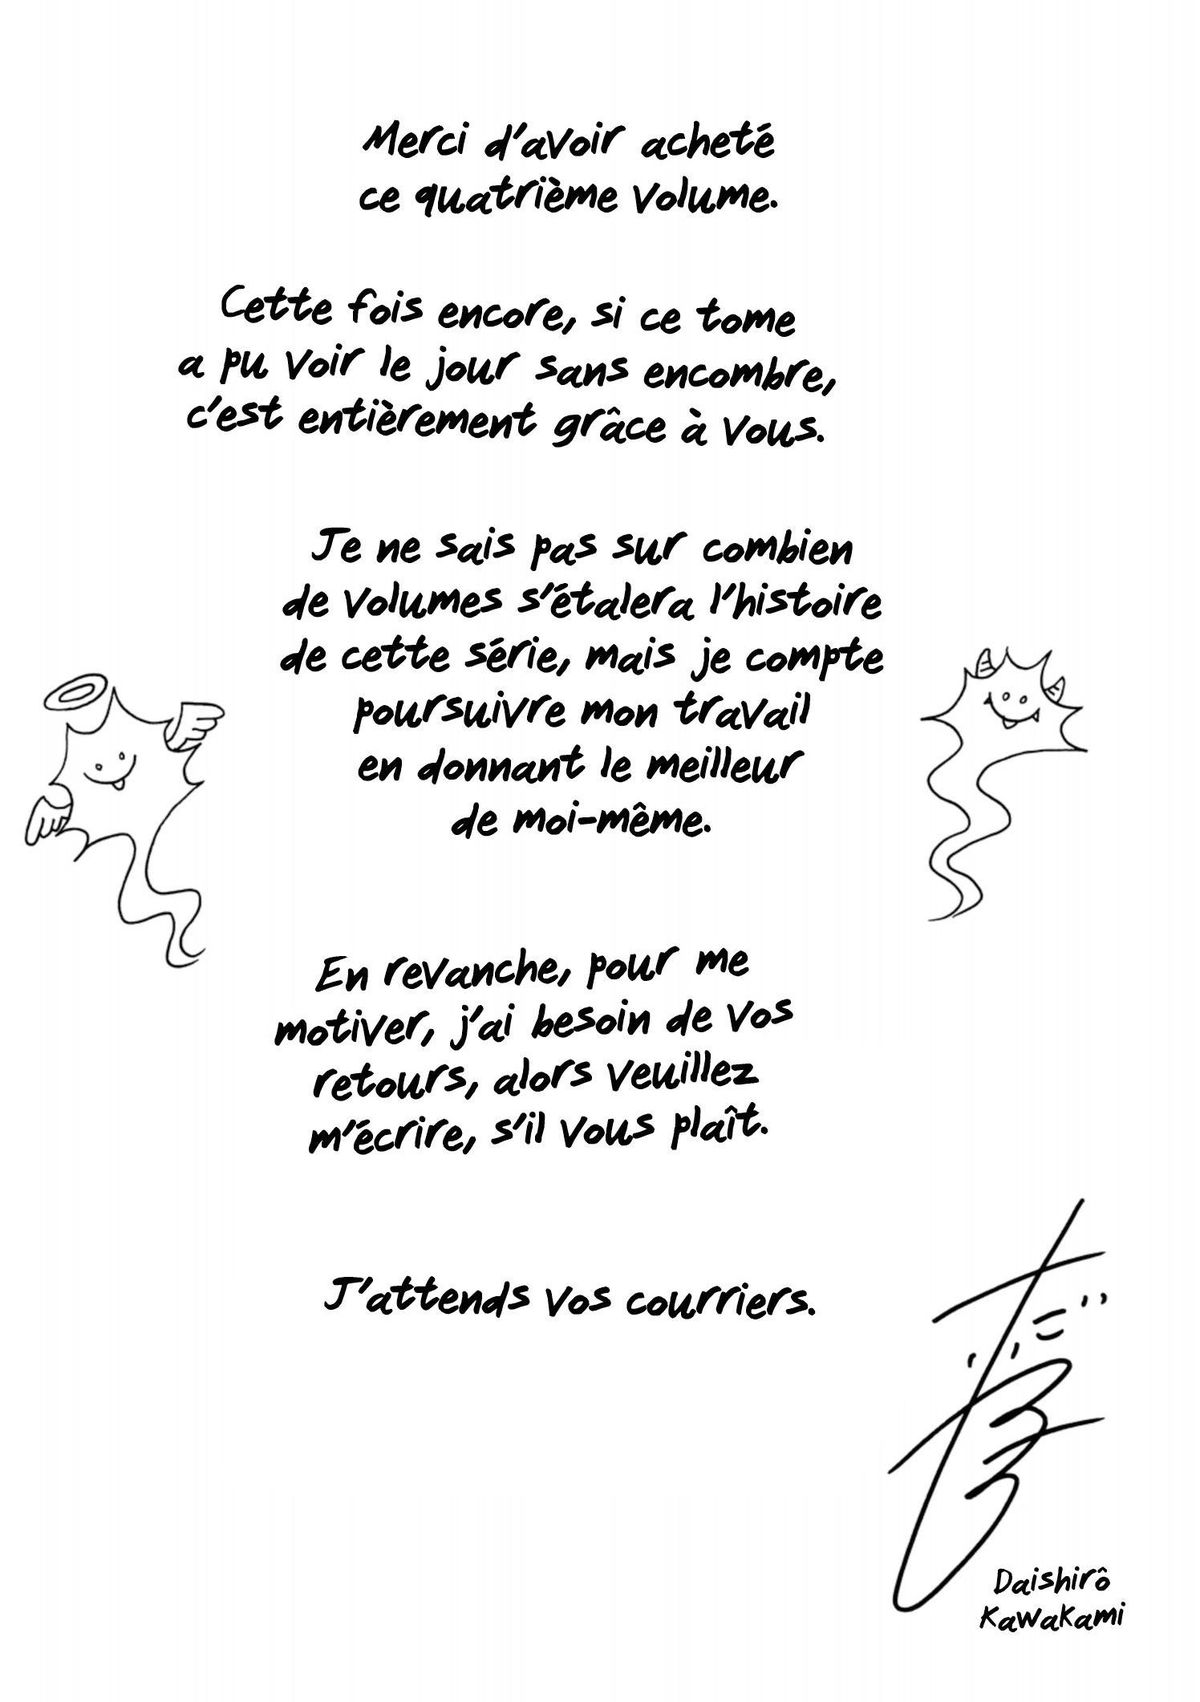 Merci d'avoir acheté
ce quatrième volume.
Cette fois encore, si ce tome
a pu voir le jour sans encombre,
c'est entièrement grâce à vous.
Je ne sais pas sur combien
de volumes s'étalera l'histoire
de cette série, mais je compte
poursuivre mon travail
en donnant le meilleur
de moi-même.
En revanche, pour me
motiver, j'ai besoin de vos
retours, alors veuillez
m'écrire, s'il vous plaît.
J'attends vos courriers.
Daishirô
Kawakami